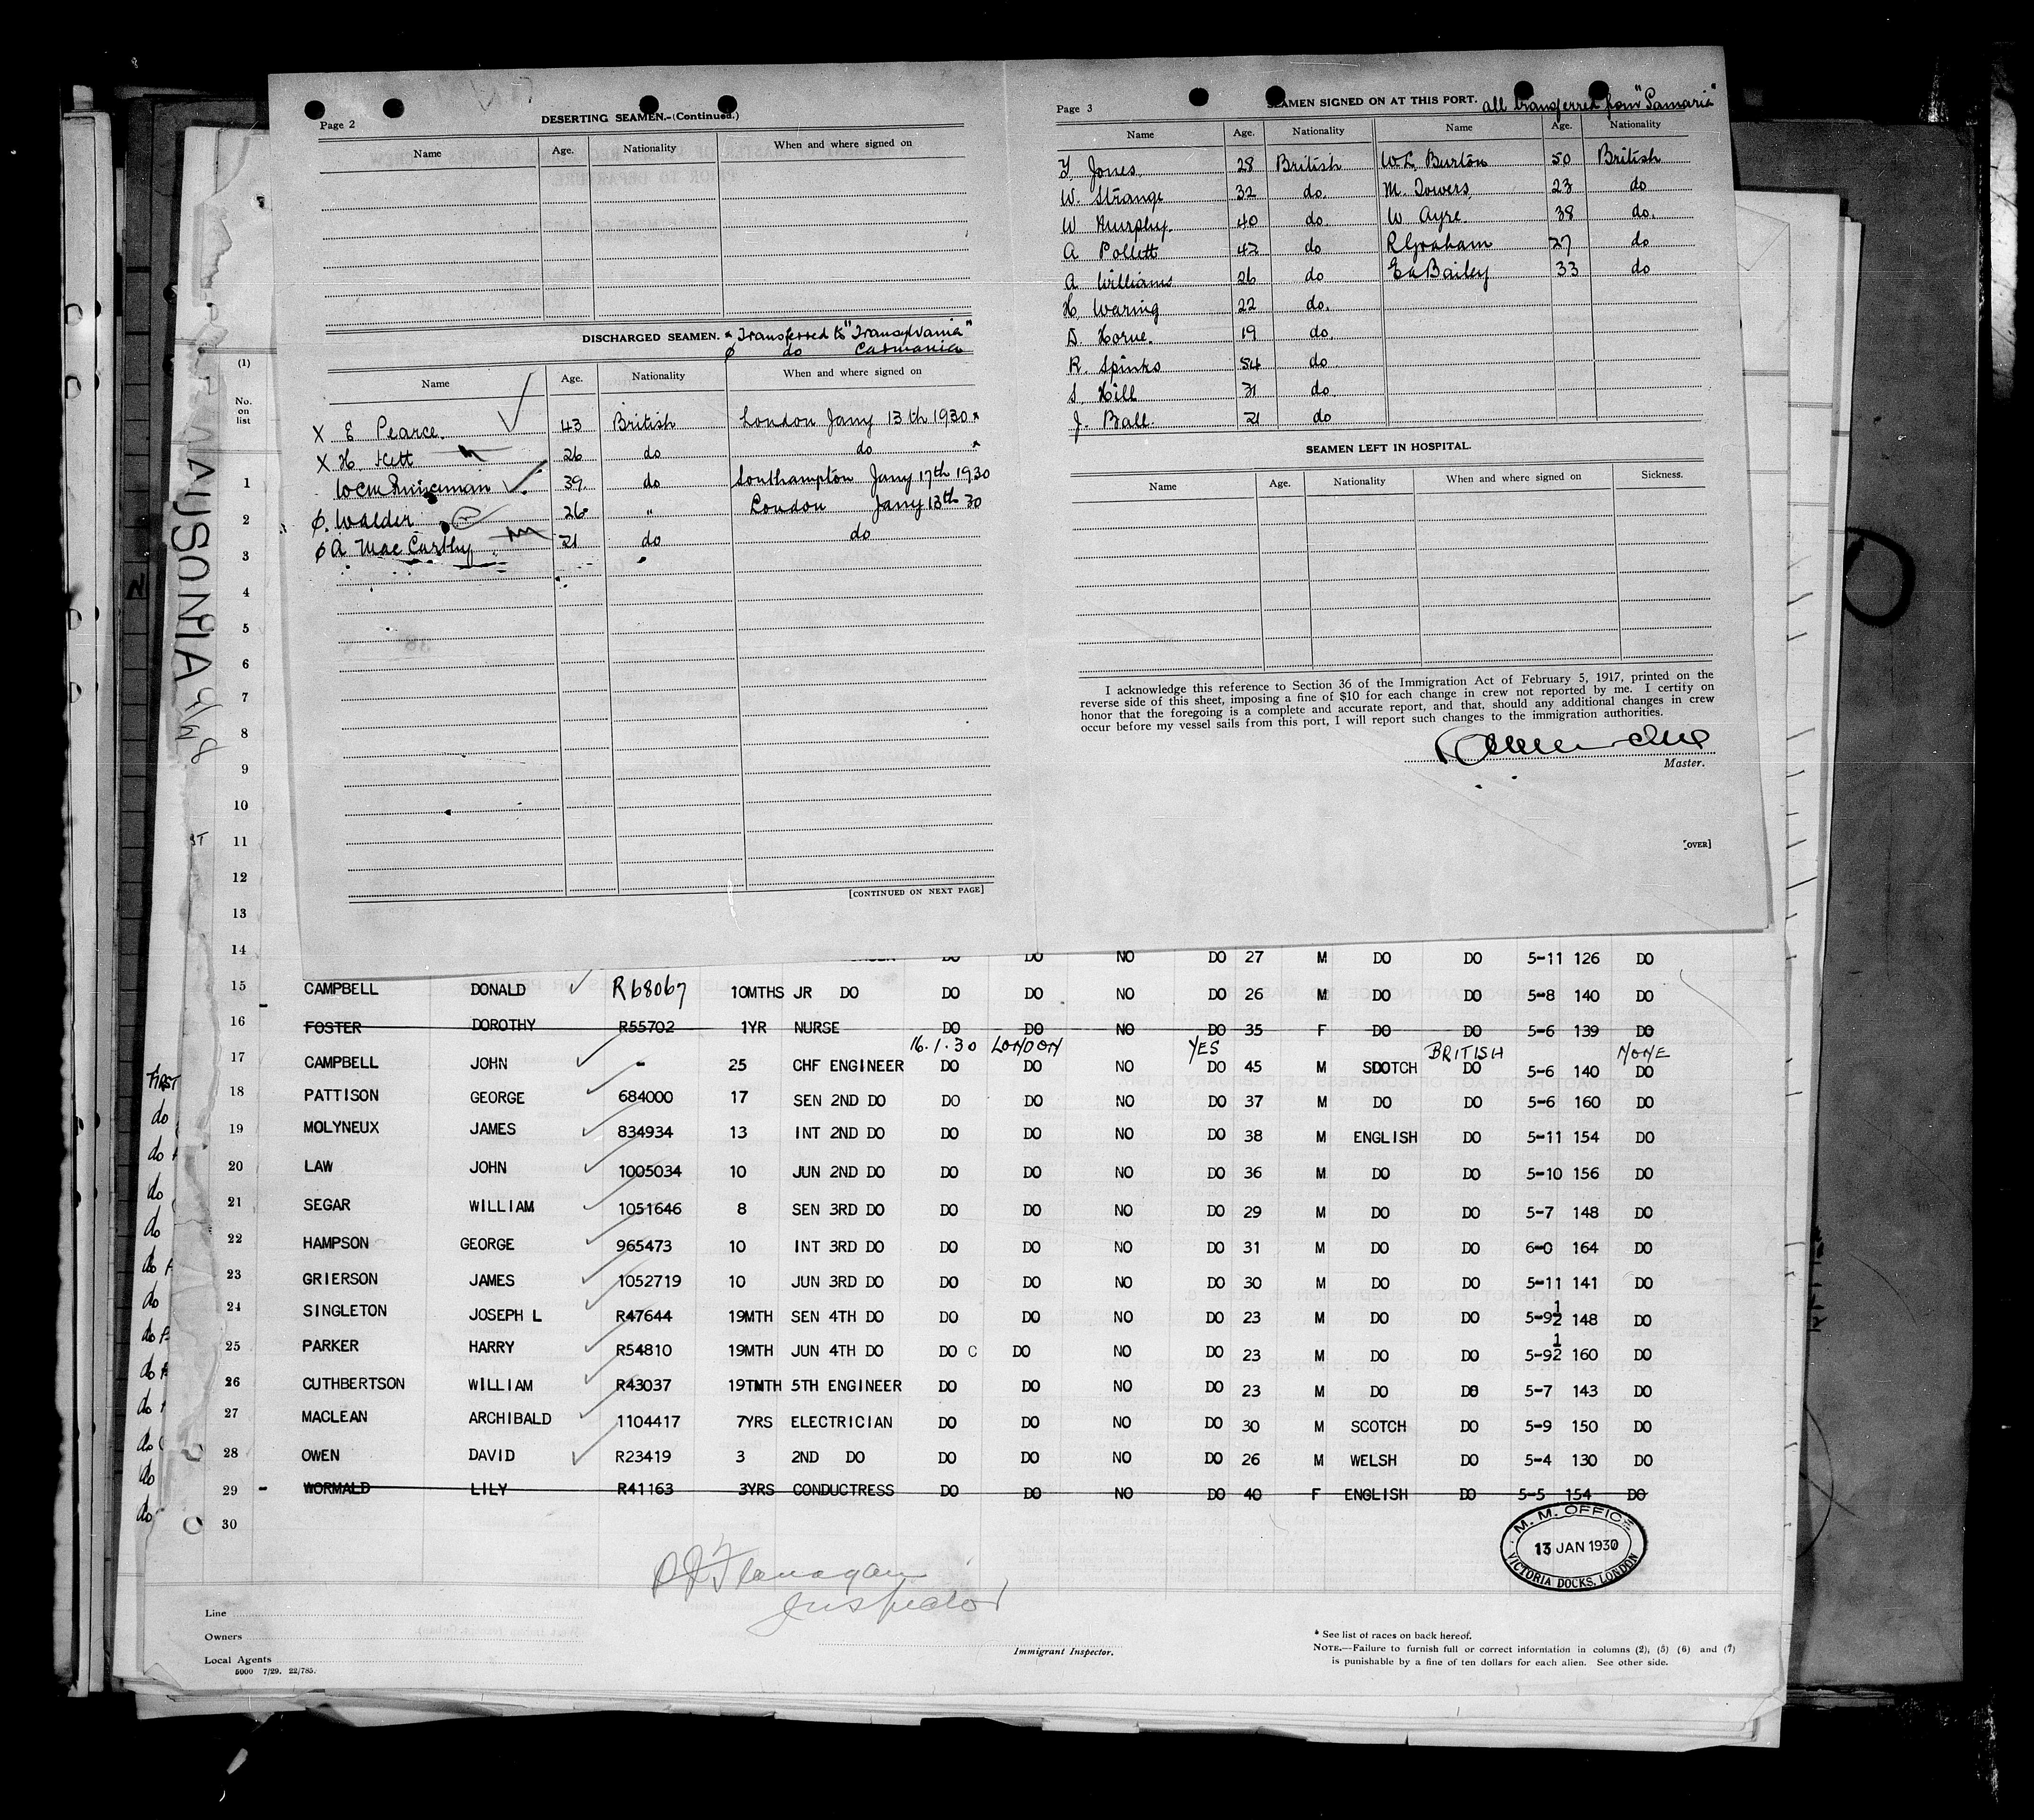 Page 2
DESERTING SEAMEN.-(Continued.)
Name Age. Nationality When and where signed on
DISCHARGED SEAMEN. * Transferred to "Transylvania"
ø do Carmania
Name Age. Nationality When and where signed on
X E Pearce. 43 British London Jany 13th 1930 *
X H. Kett 26 do do *
39 do Southampton Jany 17th 1930
ø. Walder 26 " London Jany 13th 30
ø A MacCarthy 21 do do
[CONTINUED ON NEXT PAGE]
Page 3
SEAMEN SIGNED ON AT THIS PORT. all transferred from "Samaria"
Name Age. Nationality Name Age. Nationality
Jones 28 British W.E. Burton 50 British
W. Strange 32 do. M. Towers 23 do
W Murphy. 40 do. W Ayre. 38 do.
A Pollett 42 do R Graham 27 do
A Williams 26 do E A Bailey 33 do
H Waring 22 do.
D. Horne. 19 do.
R. Spinks 54 do
S. Hill 31 do.
J. Ball. 21 do
SEAMEN LEFT IN HOSPITAL.
Name Age. Nationality When and where signed on Sickness.
I acknowledge this reference to Section 36 of the Immigration Act of February 5, 1917, printed on the
reverse side of this sheet, imposing a fine of $10 for each change in crew not reported by me. I certify on
honor that the foregoing is a complete and accurate report, and that, should any additional changes in crew
occur before my vessel sails from this port, I will report such changes to the immigration authorities.
Master.
[OVER]
AUSONIA
(1)
No.
on
list
1
2
3
4
5
6
7
8
9
10
11
12
13
14 DO DO NO DO 27 M DO DO 5-11 126 DO
15 CAMPBELL DONALD R68067 10MTHS JR DO DO DO NO DO 26 M DO DO 5-8 140 DO
16 FOSTER DOROTHY R55702 1YR NURSE DO DO NO DO 35 F DO DO 5-6 139 DO
16.1.30 LONDON YES BRITISH NONE
17 CAMPBELL JOHN - 25 CHF ENGINEER DO DO NO DO 45 M SCOTCH DO 5-6 140 DO
18 PATTISON GEORGE 684000 17 SEN 2ND DO DO DO NO DO 37 M DO DO 5-6 160 DO
19 MOLYNEUX JAMES 834934 13 INT 2ND DO DO DO NO DO 38 M ENGLISH DO 5-11 154 DO
20 LAW JOHN 1005034 10 JUN 2ND DO DO DO NO DO 36 M DO DO 5-10 156 DO
21 SEGAR WILLIAM 1051646 8 SEN 3RD DO DO DO NO DO 29 M DO DO 5-7 148 DO
22 HAMPSON GEORGE 965473 10 INT 3RD DO DO DO NO DO 31 M DO DO 6-0 164 DO
23 GRIERSON JAMES 1052719 10 JUN 3RD DO DO DO NO DO 30 M DO DO 5-11 141 DO
24 SINGLETON JOSEPH L R47644 19MTH SEN 4TH DO DO DO NO DO 23 M DO DO 5-9½ 148 DO
25 PARKER HARRY R54810 19MTH JUN 4TH DO DO C DO NO DO 23 M DO DO 5-9½ 160 DO
26 CUTHBERTSON WILLIAM R43037 19TMTH 5TH ENGINEER DO DO NO DO 23 M DO DO 5-7 143 DO
27 MACLEAN ARCHIBALD 1104417 7YRS ELECTRICIAN DO DO NO DO 30 M SCOTCH DO 5-9 150 DO
28 OWEN DAVID R23419 3 2ND DO DO DO NO DO 26 M WELSH DO 5-4 130 DO
29 - WORMALD LILY R41163 3YRS CONDUCTRESS DO DO NO DO 40 F ENGLISH DO 5-5 154 DO
30
M. M. OFFICE
13 JAN 1930
VICTORIA DOCKS, LONDON
Flanagan
Inspector
Line
Owners
Local Agents
5000 7/29. 22/785.
Immigrant Inspector.
* See list of races on back hereof.
NOTE.—Failure to furnish full or correct information in columns (2), (5) (6) and (7)
is punishable by a fine of ten dollars for each alien. See other side.
FIRST
do
do
do
do
do
do
do
do
do
do
do
do